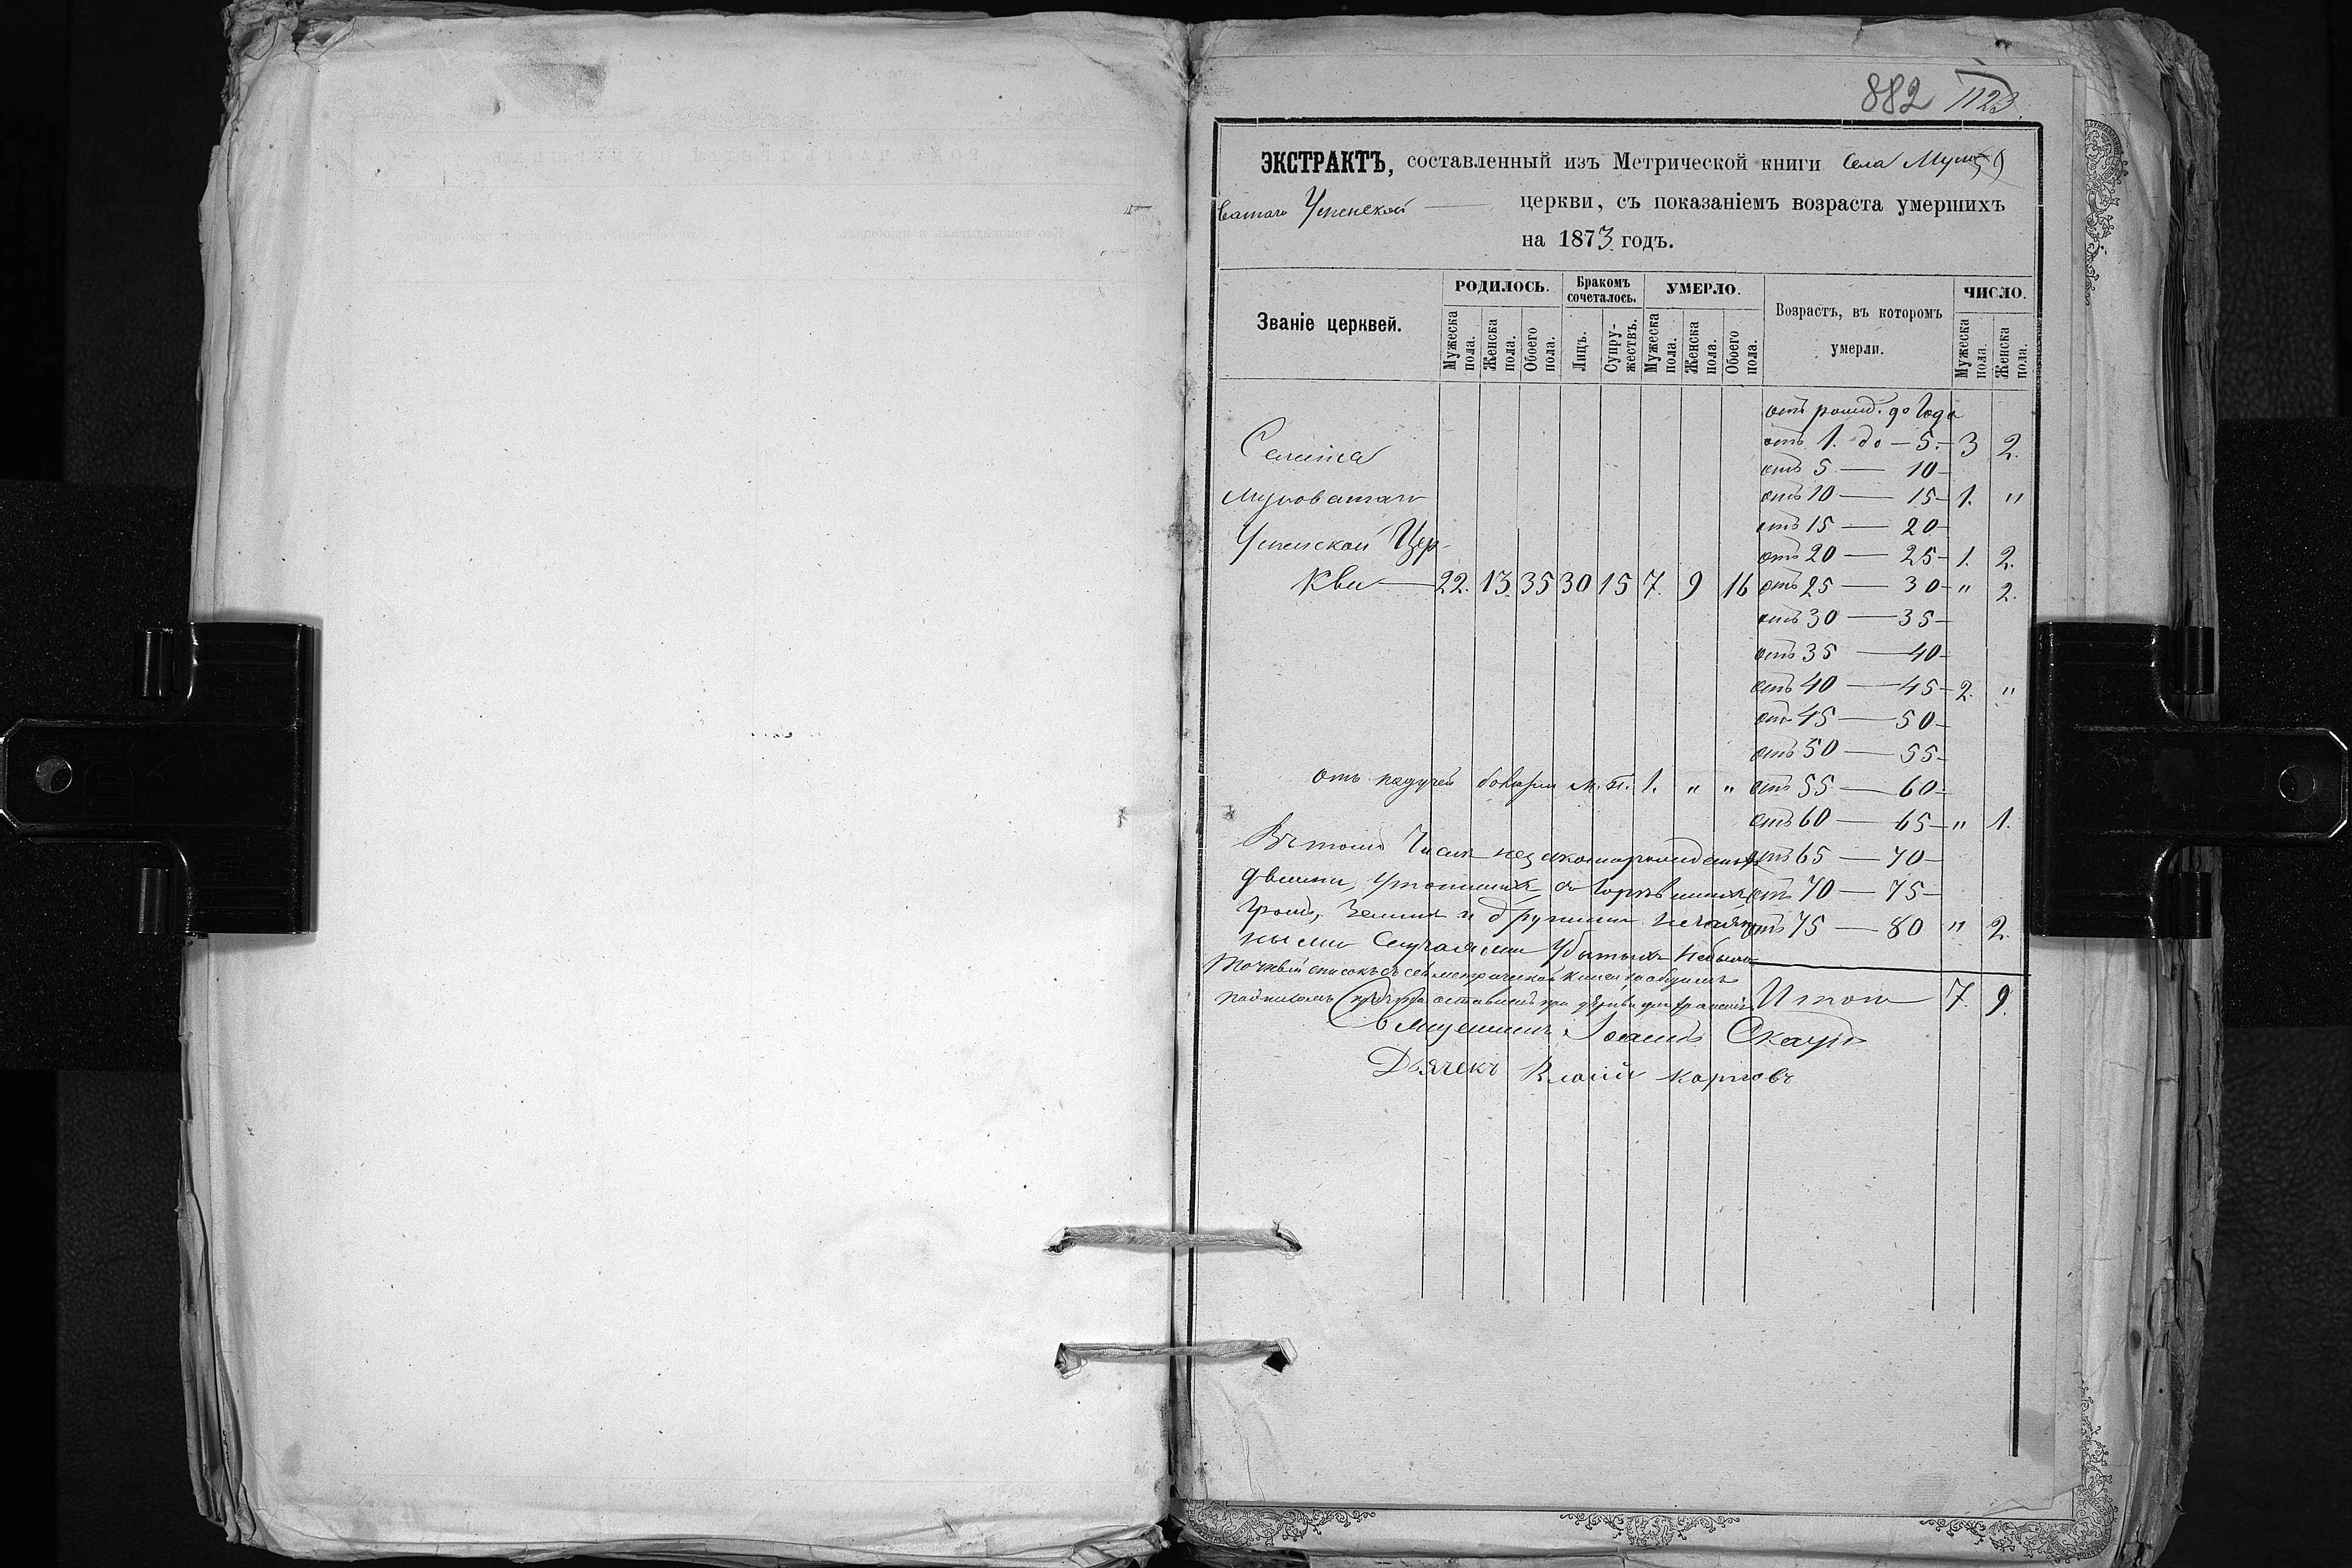 882 1123
ЭКСТРАКТЪ, составленный изъ Метрической книги Села Муро
ватаго Успенской — церкви, съ показаніемъ возраста умершихъ
на 1873 годъ.
Званіе церквей.
РОДИЛОСЬ.
Мужеска пола.
Женска пола.
Обоего пола.
Бракомъ сочеталось.
Лицъ.
Супру-жествъ.
УМЕРЛО.
Мужеска пола.
Женска пола.
Обоего пола.
Возрастъ, въ которомъ умерли.
ЧИСЛО.
Мужеска пола.
Женска пола.
отъ рожд. до года
отъ 1. до — 5. — 3 2.
отъ 5 — 10 —
отъ 10 — 15 — 1. "
отъ 15 — 20 —
отъ 20 — 25 — 1. 2.
Успенской Цер-
кви — 22. 13. 35 30 15 7. 9 16 отъ 25 — 30 — " 2.
отъ 30 — 35 —
отъ 35 — 40 —
отъ 40 — 45 — 2. "
отъ 45 — 50 —
отъ 50 — 55 —
отъ падучей болезни м. п. 1. " " отъ 55 — 60 —
отъ 60 — 65 — " 1.
Въ томъ числе отъ 65 — 70 —
отъ 70 — 75 —
и другими отъ 75 — 80 " 2.
ными случаями убитыхъ небыло
Точный списокъ съ сей метрической книги
Итого 7. 9.
Священникъ Іоаннъ
Дьячекъ